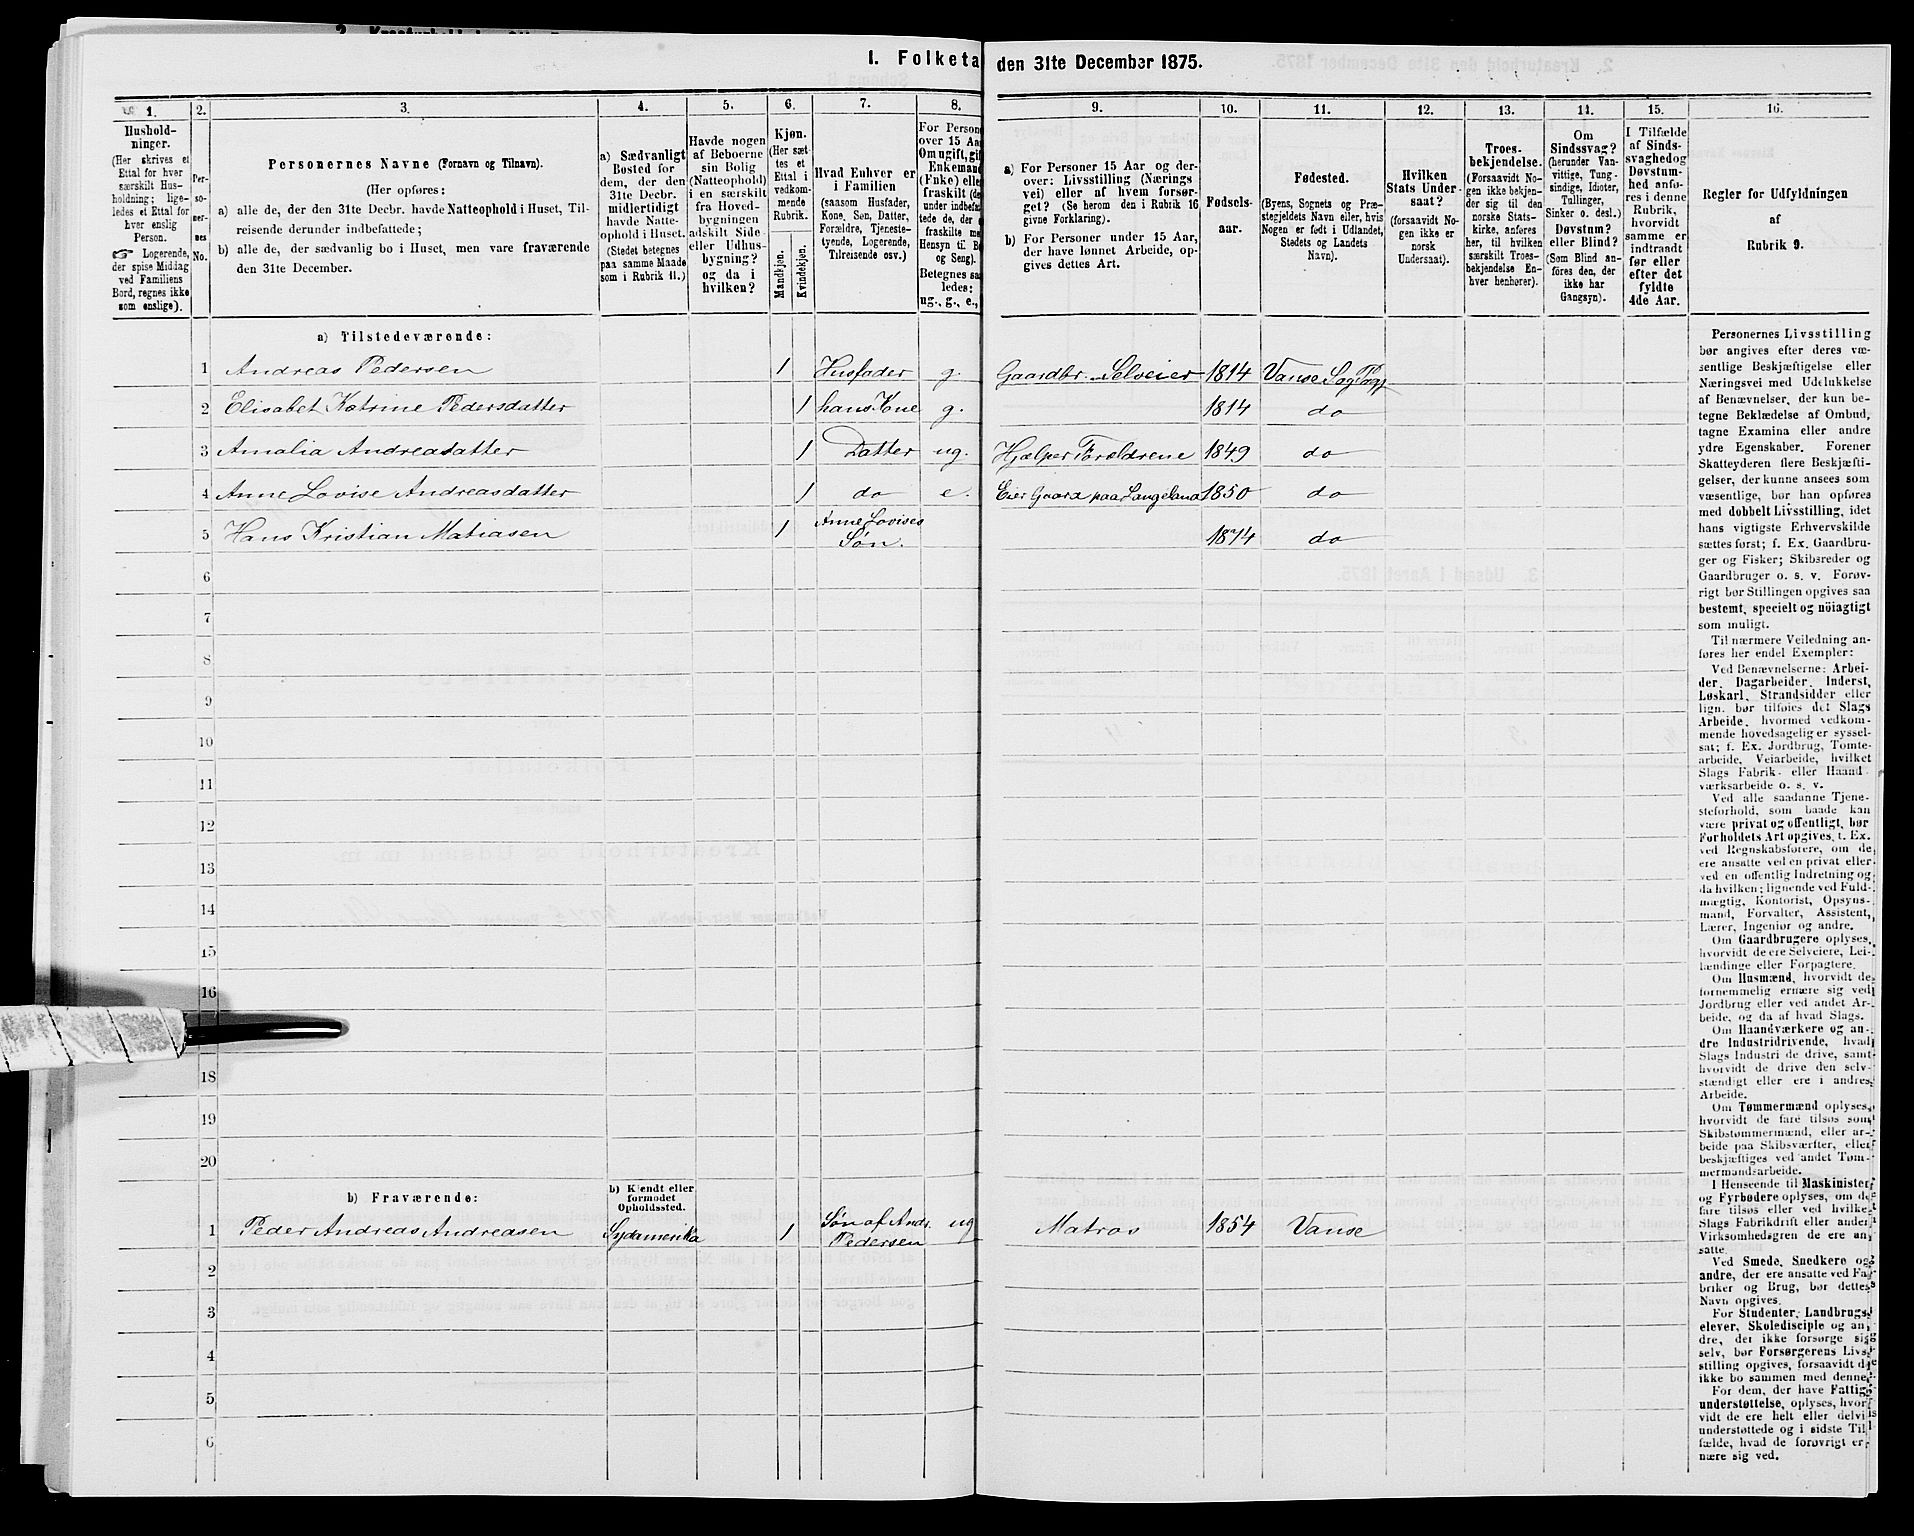 I. Folketa den 31te December 1875.
1.
Hushold-
ninger.
(Her skrives et
Ettal for hver
særskilt Hus-
holdning; lige-
ledes et Ettal for
hver enslig
Person.
☞ Logerende,
der spise Middag
ved Familiens
Bord, regnes ikke
som enslige).
2.
Per-
so-
ner-
nes
No.
3.
Personernes Navne (Fornavn og Tilnavn).
(Her opføres:
a) alle de, der den 31te Decbr. havde Natteophold i Huset, Til-
reisende derunder indbefattede;
b) alle de, der sædvanlig bo i Huset, men vare fraværende
den 31te December.
4.
a) Sædvanligt
Bosted for
dem, der den
31te Decbr.
midlertidigt
havde Natte-
ophold i Huset.
(Stedet betegnes
paa samme Maade
som i Rubrik 11.)
5.
Havde nogen
af Beboerne
sin Bolig
(Natteophold)
i en særskilt
fra Hoved-
bygningen
adskilt Side-
eller Udhus-
bygning?
og da i
hvilken?
6.
Kjøn.
(Her sæt-
tes et
Ettal i
vedkom-
mende
Rubrik.
Mandkjøn.
Kvindekjøn.
7.
Hvad Enhver er
i Familien
(saasom Husfader,
Kone, Søn, Datter,
Forældre, Tjeneste-
tyende, Logerende,
Tilreisende osv.)
8.
For Person
over 15 Aa
Om ugift, gif
Enkemand
(Enke) elle
fraskilt (de
under indbefat
tede de, der e
fraskilte m
Hensyn til B
og Seng).
Betegnes saa
ledes:
ug., g., e.,
9.
a) For Personer 15 Aar og der-
over: Livsstilling (Nærings
vei) eller af hvem forsør-
get? (Se herom den i Rubrik 16
givne Forklaring).
b) For Personer under 15 Aar,
der have lønnet Arbeide, op-
gives dettes Art.
10.
Fødsels-
aar.
11.
Fødested.
(Byens, Sognets og Præ-
stegjeldets Navn eller, hvis
Nogen er født i Udlandet,
Stedets og Landets
Navn).
12.
Hvilken
Stats Under-
saat?
(forsaavidt No-
gen ikke er
norsk
Undersaat).
13.
Troes-
bekjendelse.
(Forsaavidt No-
gen ikke bekjen-
der sig til den
norske Stats-
kirke, anføres
her, til hvilken
særskilt Troes-
bekjendelse En-
hver henhører).
14.
Om
Sindssvag?
(herunder Van-
vittige, Tung-
sindige, Idioter,
Tullinger,
Sinker o. desl.)
Døvstum?
eller Blind?
(Som Blind an-
føres den, der
ikke har
Gangsyn).
15.
I Tilfælde
af Sinds-
svaghed og
Døvstum-
hed anfø-
res i denne
Rubrik,
hvorvidt
samme er
indtraadt
før eller
efter det
fyldte
4de Aar.
16.
Regler for Udfyldningen
af
Rubrik 9.
a) Tilstedeværende:
1 Andreas Pedersen 1 Husfader g. Gaardbr. Selveier 1814 Vanse Sog
2 Elisabet Katrine Pedersdatter 1 hans Kone g. 1814 do
3 Amalia Andreasdatter 1 Datter ug. Hjælper Forældrene 1849 do
4 Anne Lovise Andreasdatter 1 do e. Eier Gaard paa Langeland 1850 do
5 Hans Kristian Matiasen 1 Anne Lovises
Søn. 1874 do
6
7
8
9
10
11
12
13
14
15
16
18
19
20
b) Fraværende:
b) Kjendt eller
formodet
Opholdssted.
1 Peder Andreas Andreasen Sydamerika 1 Søn af Andr.
Pedersen ug Matros 1854 Vanse
2
3
4
5
6
Personernes Livsstilling
bør angives efter deres væ-
sentlige Beskjæftigelse eller
Næringsvei med Udelukkelse
af Benævnelser, der kun be-
tegne Beklædelse af Ombud,
tagne Examina eller andre
ydre Egenskaber. Forener
Skatteyderen flere Beskjæfti-
gelser, der kunne ansees som
væsentlige, bør han opføres
med dobbelt Livsstilling, idet
hans vigtigste Erhvervskilde
sættes først; f. Ex. Gaardbru-
ger og Fisker; Skibsreder og
Gaardbruger o. s. v. Forøv-
rigt bør Stillingen opgives saa
bestemt, specielt og nöiagtigt
som muligt.
Til nærmere Veiledning an-
føres her endel Exempler:
Ved Benævnelserne: Arbei-
der, Dagarbeider, Inderst,
Løskarl, Strandsidder eller
lign. bør tilføies det Slags
Arbeide, hvormed vedkom-
mende hovedsagelig er syssel-
sat; f. Ex. Jordbrug, Tomte-
arbeide, Veiarbeide, hvilket
Slags Fabrik- eller Haand-
værksarbeide o. s. v.
Ved alle saadanne Tjene-
steforhold, som baade kan
være privat og offentligt, bør
Forholdets Art opgives, t. Ex.
ved Regnskabsførere, om de
ere ansatte ved en privat eller
ved en offentlig Indretning og
da hvilken; lignende ved Fuld-
mægtig, Kontorist, Opsyns-
mand, Forvalter, Assistent,
Lærer, Ingeniør og andre.
Om Gaardbrugere oplyses,
hvorvidt de ere Selveiere, Lei-
lændinge eller Forpagtere.
Om Husmænd, hvorvidt de
fornemmelig ernære sig ved
Jordbrug eller ved andet Ar-
beide, og da af hvad Slags.
Om Haandværkere og an-
dre Industridrivende, hvad
Slags Industri de drive, samt
hvorvidt de drive den selv-
stændigt eller ere i andres
Arbeide.
Om Tømmermænd oplyses,
hvorvidt de fare tilsøs som
Skibstømmermænd, eller ar-
beide paa Skibsværfter, eller
beskjæftiges ved andet Tøm-
mermandsarbeide.
I Henseende til Maskinister
og Fyrbødere oplyses, om de
fare tilsøs eller ved hvilket
Slags Fabrikdrift eller anden
Virksomhedsgren de ere an
satte.
Ved Smede, Snedkere og
andre, der ere ansatte ved Fa-
briker og Brug, bør dettes
Navn opgives.
For Studenter, Landbrugs-
elever, Skoledisciple og an-
dre, der ikke forsørge sig
selv, bør Forsørgerens Livs-
stilling opgives, forsaavidt de
ikke bo sammen med denne.
For dem, der have Fattig-
understøttelse, oplyses, hvor-
vidt de ere helt eller delvis
understøttede og i sidste Til-
fælde, hvad de forøvrigt er-
nære sig ved.